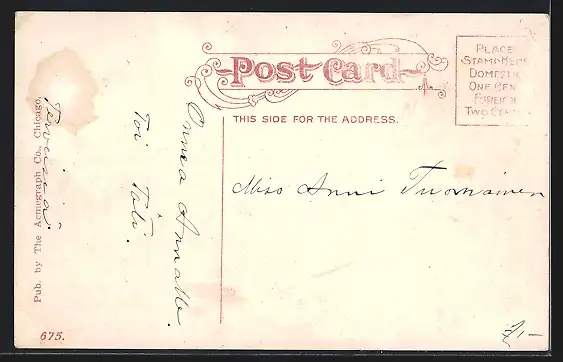 Post Card
THIS SIDE FOR THE ADDRESS.
PLACE
STAMP HERE
DOMESTIC
ONE CENT
FOREIGN
TWO CENTS
Miss Anni Tuomainen
Onnea Annalle.
Toi Täti.
Terveisiä.
Pub. by The Acmegraph Co., Chicago.
675.
7,-